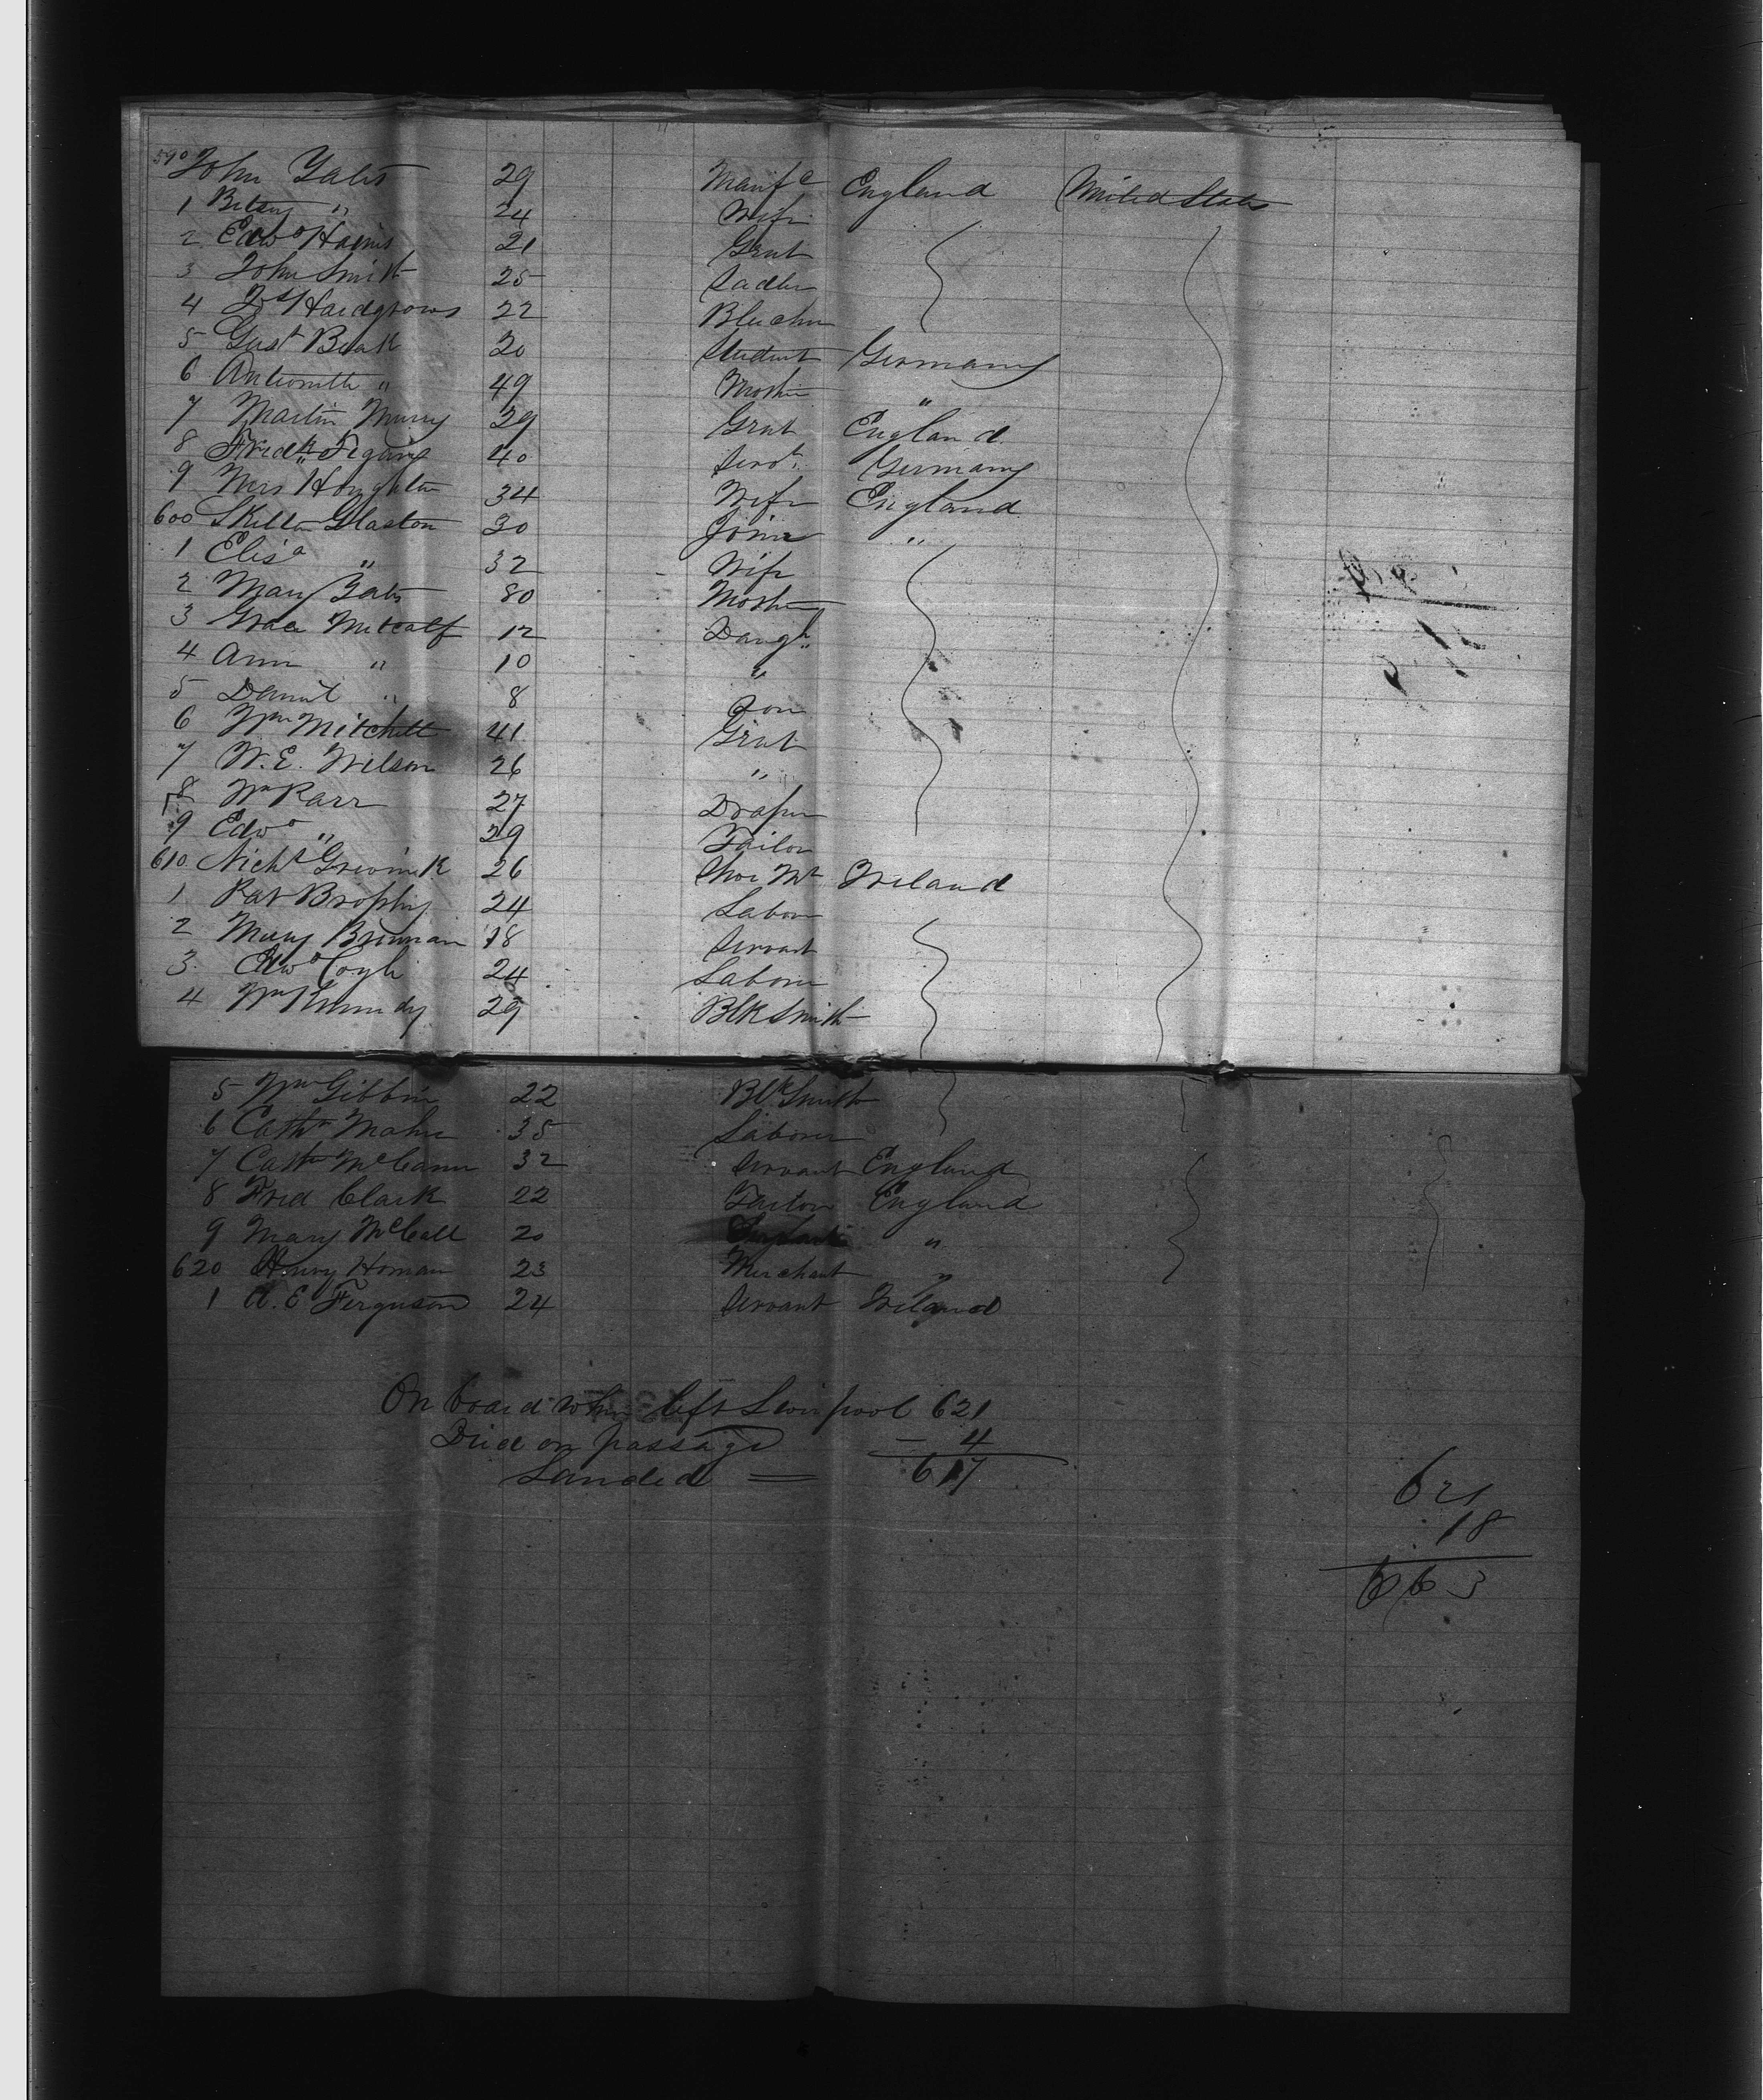 590 John Yates 29 Manufc England United States
1 Betsy " 24 Wife
2 Edwd Harris 21 Gent
3 John Smith 25 Sadler
4 Jos Hardgrows 22 Bleacher
5 Gust Beak 20 Student Germany
6 " 49 Mother "
7 Martin Murry 29 Gent England
8 Fredk 40 Servt. Germany
9 Mrs Hoyghton 34 Wife England
600 Glaston 30 Joiner "
1 Elisa " 32 Wife
2 Mary Yates 80 Mother
3 Grace Metcalf 12 Daughr
4 Ann " 10 "
5 Daniel " 8 Son
6 Wm Mitchell 41 Gent
7 W. E. Wilson 26 "
8 Wm Parr 27 Draper
9 Edwd " 29 Tailor
610 Nichs 26 Shoe Mr Ireland
1 Pat Brophy 24 Labour
2 Mary Brennan 18 Servant
3 Edwd Coyle 24 Labour
4 Wm Kennedy 29 Blk Smith
5 Wm Gibbin 22 Blk Smith
6 Cathn Maher 35 Labour
7 Cathn McCann 32 Servant England
8 Fred Clark 22 Tailor England
9 Mary McCall 20 "
620 Henry Homan 23 Merchant "
1 A. E Ferguson 24 Servant Ireland
On board when left Liverpool 621
Died on passage - 4
Landed = 617
621
18
663